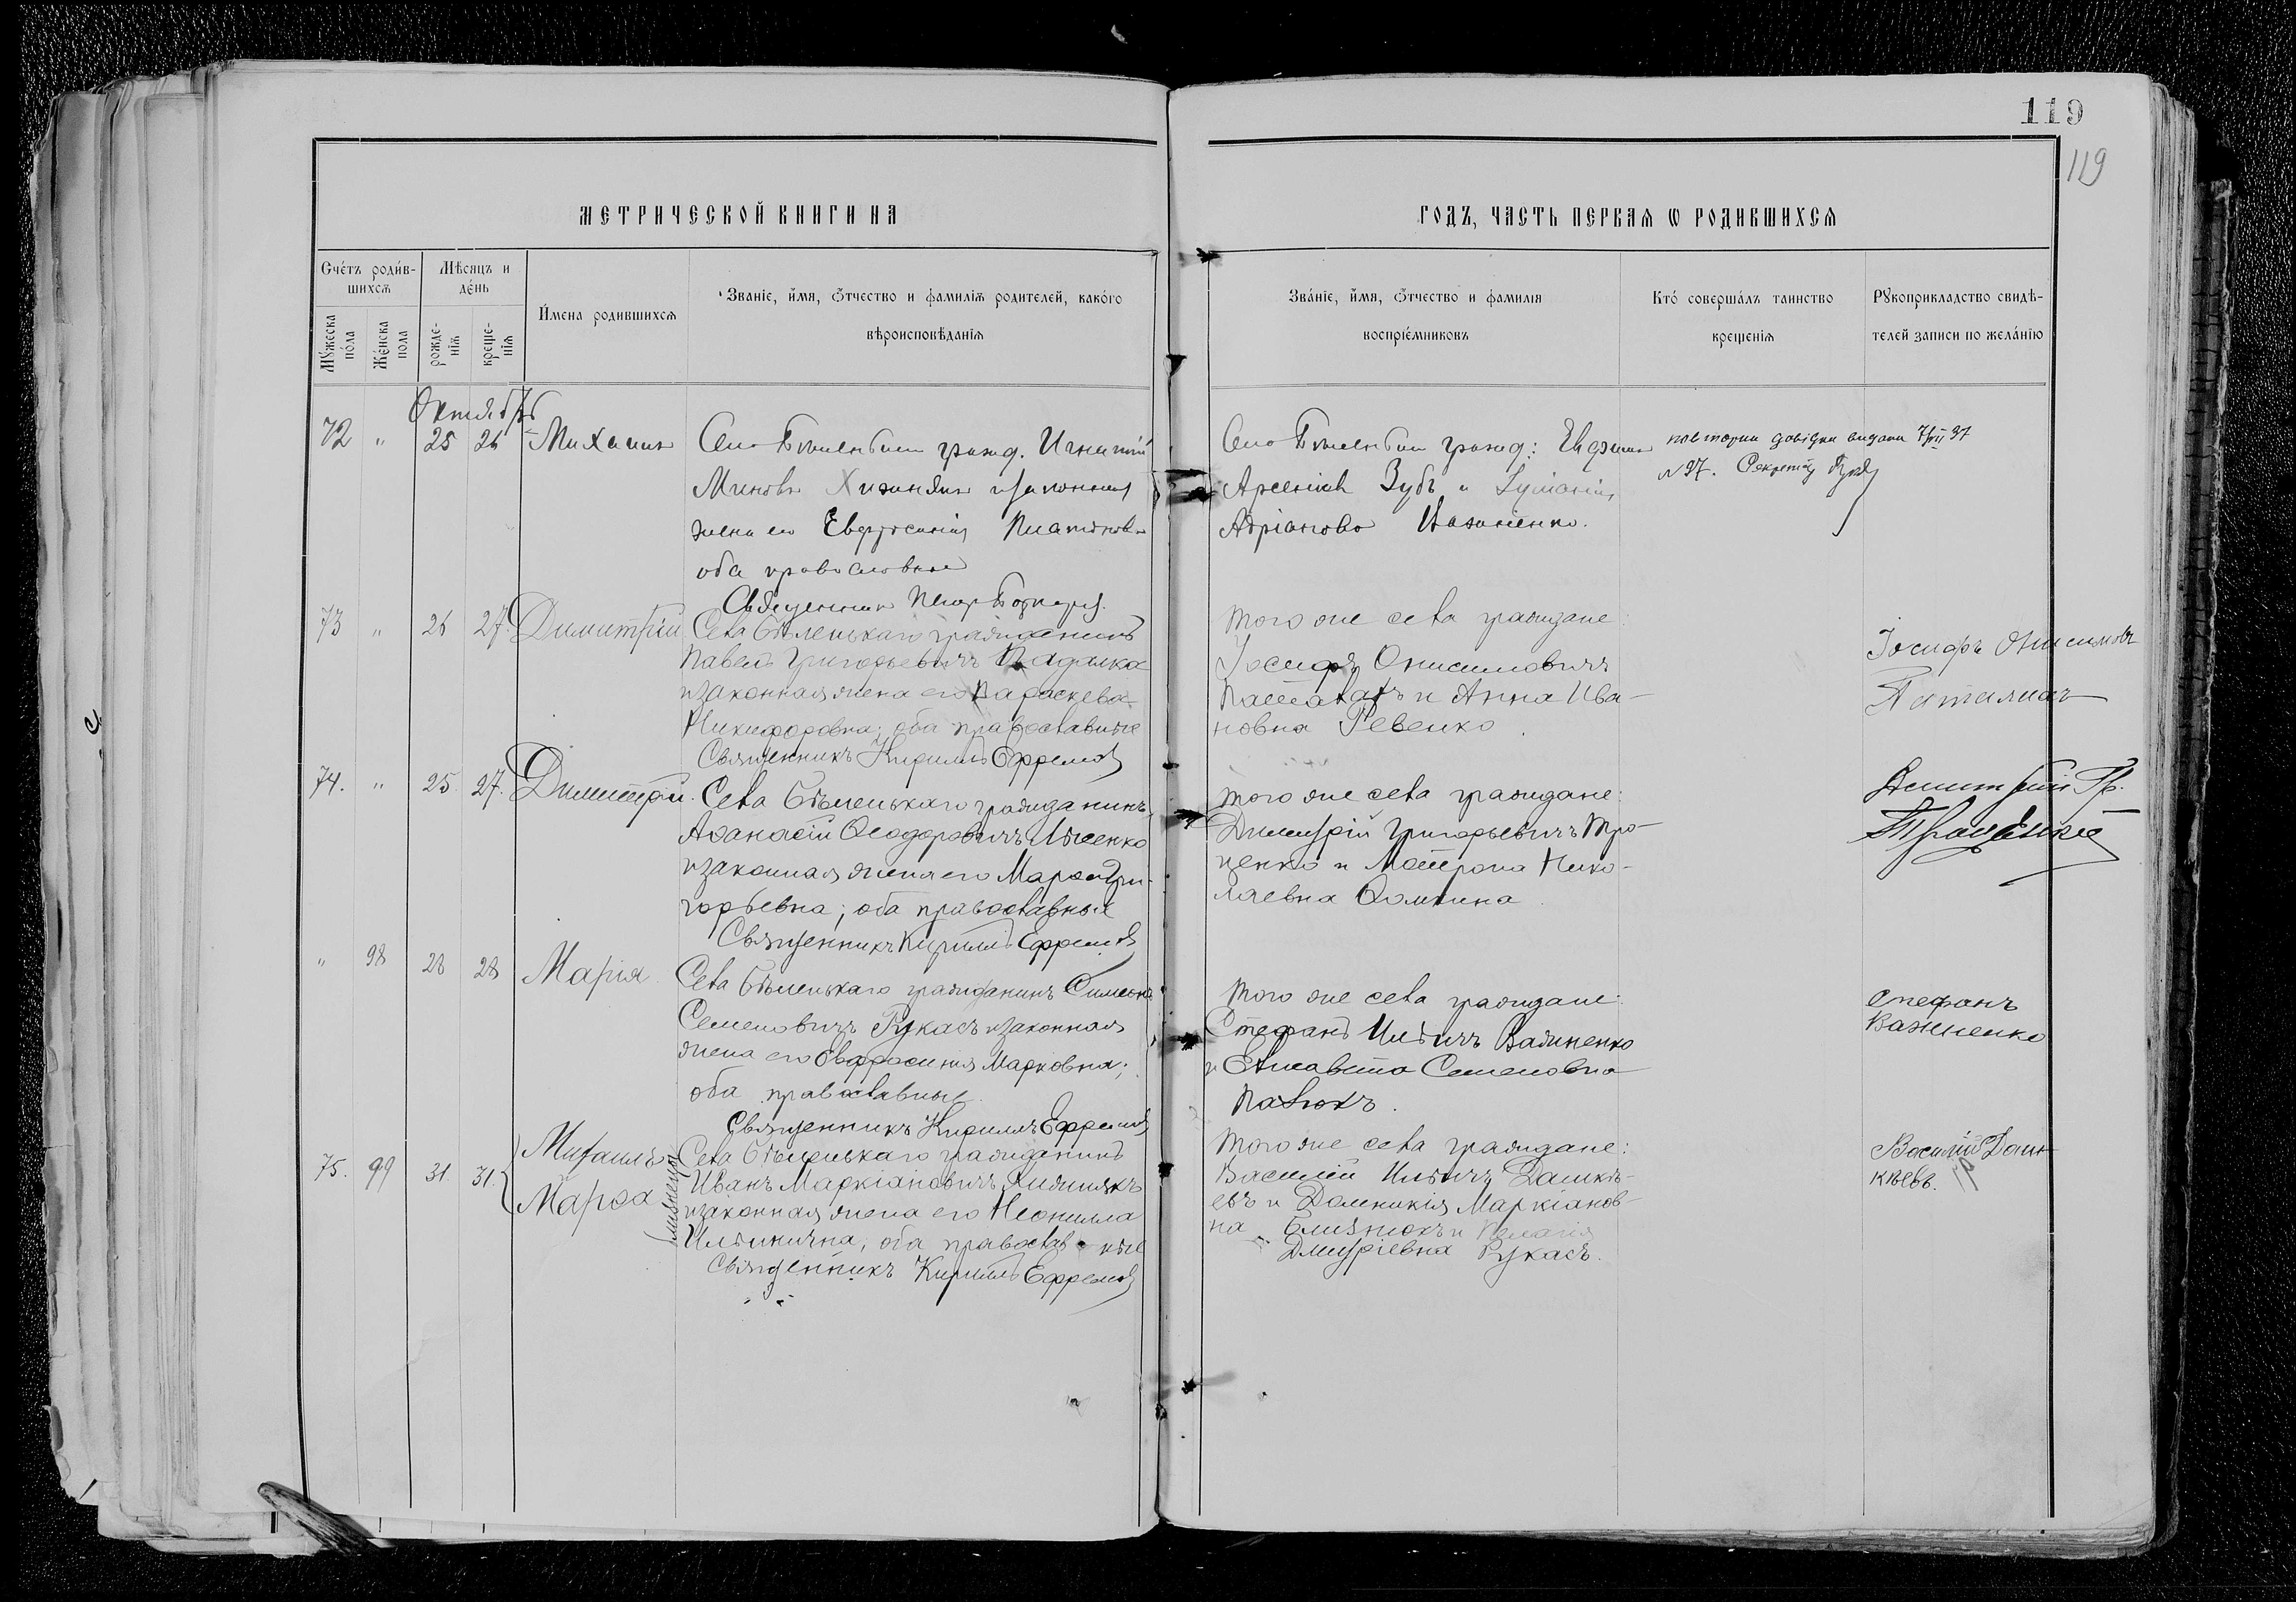 119
119
МЕТРИЧЕСКОЙ КНИГИ НА
ГОДЪ, ЧАСТЬ ПЕРВАѦ Ѡ РОДИВШИХСѦ
Счетъ родив-
шихсѧ
Мѣсяцъ и
день
Имена родившихсѧ
Званіе, имя, ѻтчество и фамиліѧ родителей, какого
вѣроисповѣданіѧ
Мꙋжеска
пола
Женска
пола
рожде-
нїѧ
креще-
нїѧ
Званіе, имя, ѻтчество и фамилія
воспріемниковъ
Кто совершалъ таинство
крещенія
Рꙋкоприкладство свидѣ-
телей записи по желанію
Октябрь
72 " 25 26 Михаилъ
Игнатій
жена его Евфросинія Платоновна
оба православные
Арсеніевъ Зубъ и
Адріанова
повторни довідки видани
№ 97. Секретарь
73 " 26 27. Димитрій
Села Бѣленькаго гражданинъ
Павелъ Григорьевичъ Падалка
и законная жена его Параскева
Никифоровна; оба православные
Священникъ Кириллъ Ефремов
Того же села граждане:
Іосифъ Онисимовичъ
и Анна Ива-
новна Ревенко.
Іосифъ Онисимовъ
74. " 25. 27. Димитрій.
Села Бѣленькаго гражданинъ
Аѳанасій Ѳеодоровичъ Ивченко
и законная жена его Марѳа Гри-
горьевна; оба православные
Священникъ Кириллъ Ефремов
Того же села граждане:
Димитрій Григорьевичъ Тро-
ценко и Матрона Нико-
лаевна Ѳомина.
Димитрій Гр.
Троценко
" 98 28 28 Марія
Села Бѣленькаго гражданинъ Симеонъ
Семеновичъ Рукасъ и законная
жена его Евфросинія Марковна;
оба православные.
Священникъ Кириллъ Ефремов
Того же села граждане:
Стефанъ Ильичъ Важненко
и Елисавета Семеновна
Палюхъ.
Стефанъ
Важненко
75. 99 31. 31.
Михаилъ
Марѳа
близнецы
Села Бѣленькаго гражданинъ
Иванъ Маркіановичъ Хижнякъ
и законная жена его Неонилла
Ильинична, оба православные
Священникъ Кириллъ Ефремов
Того же села граждане:
Василій Ильичъ Дашкѣ-
евъ и Домникія Маркіанов-
на Близнюкъ и Пелагія
Дмитріевна Рукасъ.
Василій Даш-
кѣевъ.